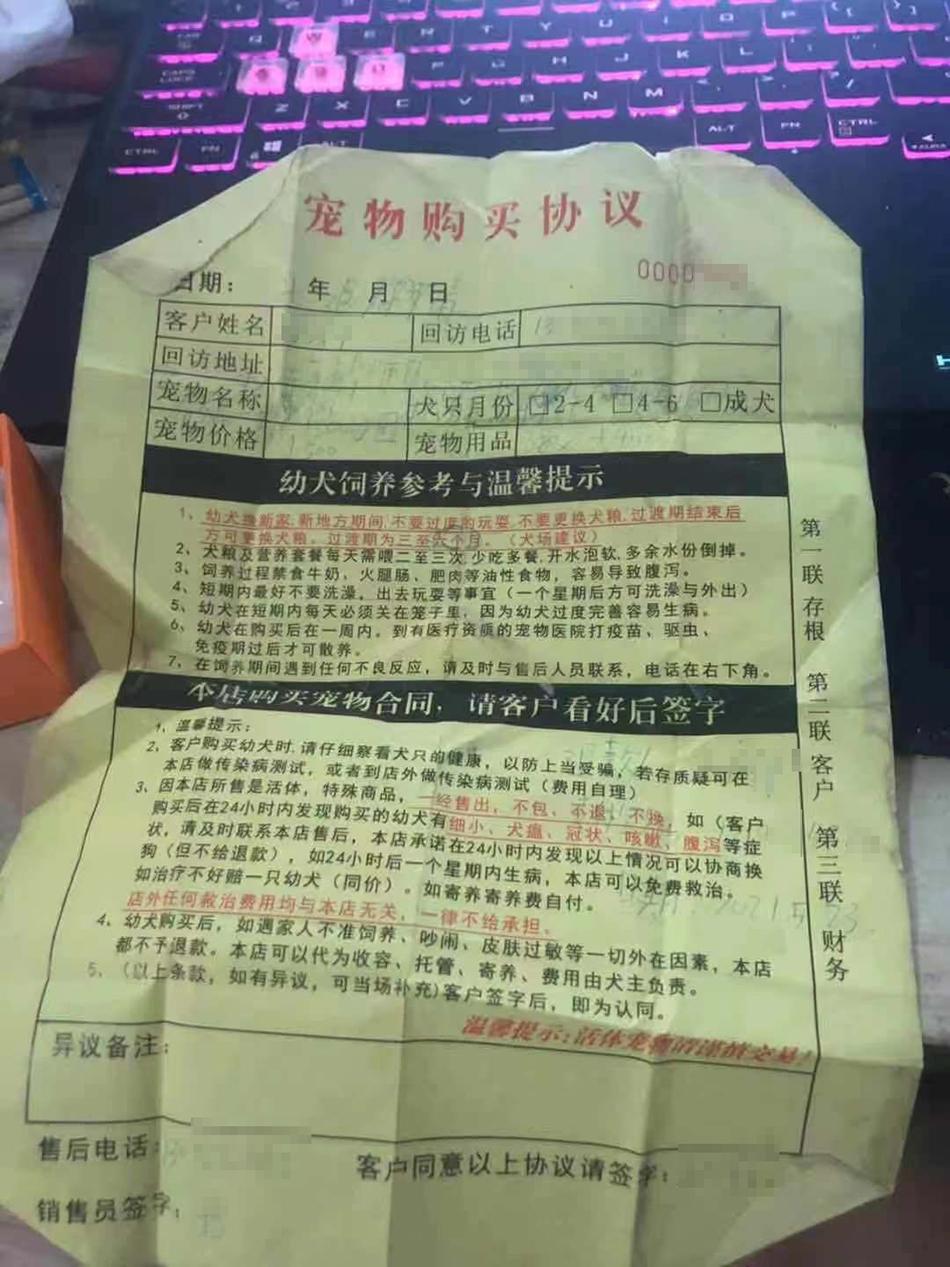 宠物购买协议
0000
日期： 年 5 月 日
客户姓名 回访电话 13
回访地址
宠物名称 犬只月份 □2-4 □4-6 □成犬
宠物价格 宠物用品
幼犬饲养参考与温馨提示
1、幼犬换新家，新地方期间，不要过度的玩耍，不要更换犬粮，过渡期结束后
方可更换犬粮。过渡期为三至六个月。（犬场建议）
2、犬粮及营养套餐每天需喂二至三次，少吃多餐，开水泡软，多余水份倒掉。
3、饲养过程禁食牛奶，火腿肠、肥肉等油性食物，容易导致腹泻。
4、短期内最好不要洗澡，出去玩耍等事宜（一个星期后方可洗澡与外出）
5、幼犬在短期内每天必须关在笼子里，因为幼犬过度完善容易生病。
6、幼犬在购买后在一周内。到有医疗资质的宠物医院打疫苗、驱虫、
免疫期过后才可散养。
7、在饲养期间遇到任何不良反应，请及时与售后人员联系，电话在右下角。
本店购买宠物合同，请客户看好后签字
1、温馨提示：
2、客户购买幼犬时，请仔细察看犬只的健康，以防上当受骗，若存质疑可在
本店做传染病测试，或者到店外做传染病测试（费用自理）
3、因本店所售是活体，特殊商品，一经售出，不包、不退、不换，如（客户
购买后在24小时内发现购买的幼犬有细小、犬瘟、冠状、咳嗽、腹泻等症
状，请及时联系本店售后，本店承诺在24小时内发现以上情况可以协商换
狗（但不给退款），如24小时后一个星期内生病，本店可以免费救治。
如治疗不好赔一只幼犬（同价）。如寄养寄养费自付。
店外任何救治费用均与本店无关，一律不给承担。
4、幼犬购买后，如遇家人不准饲养、吵闹、皮肤过敏等一切外在因素，本店
都不予退款。本店可以代为收容、托管、寄养、费用由犬主负责。
5、（以上条款，如有异议，可当场补充）客户签字后，即为认同。
温馨提示：活体宠物请谨慎交易！
异议备注：
售后电话：
客户同意以上协议请签字：
销售员签字：
第一联 存根 第二联 客户 第三联 财务
2021.5 23
CAPS LOCK
SHIFT
Z X C V B N M
CTRL FN ALT
ALT FN CTRL